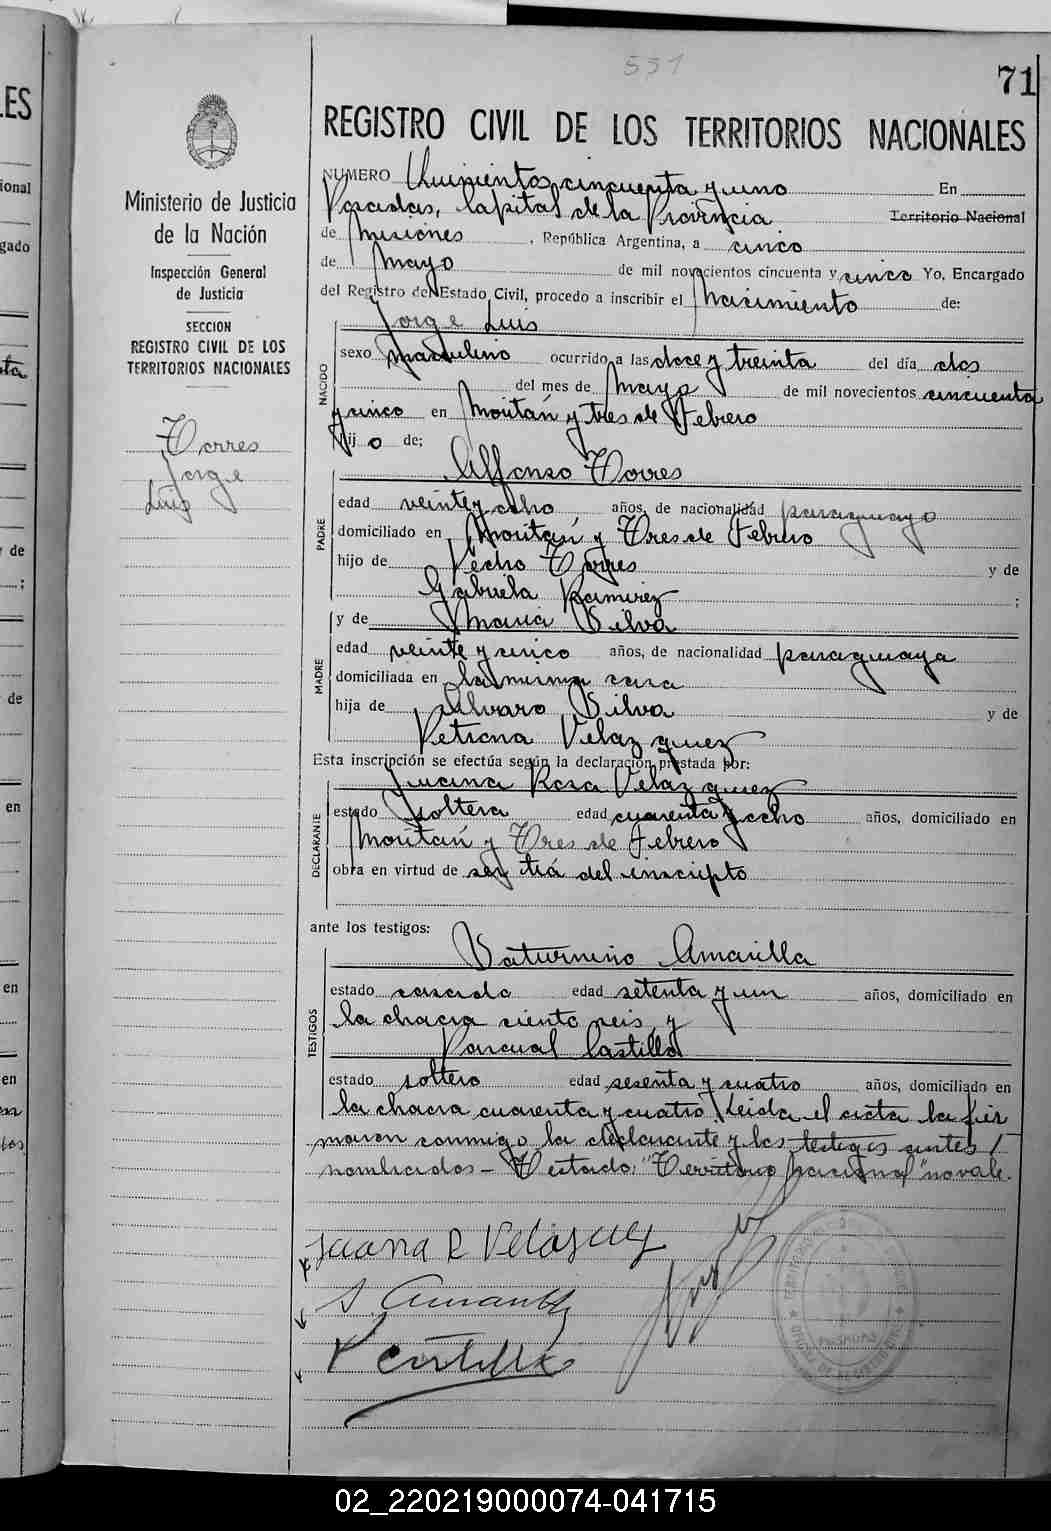 551
71
LES
REGISTRO CIVIL DE LOS TERRITORIOS NACIONALES
Ministerio de Justicia
de la Nación
Inspección General
de Justicia
SECCION
REGISTRO CIVIL DE LOS
TERRITORIOS NACIONALES
Torres
Jorge
Luis
NUMERO Quinientos cincuenta y uno En
Posadas, Capital de la Provincia Territorio Nacional
de Misiones, República Argentina, a cinco
de Mayo de mil novecientos cincuenta y cinco Yo, Encargado
del Registro del Estado Civil, procedo a inscribir el Nacimiento de:
Jorge Luis
NACIDO
sexo masculino ocurrido a las doce y treinta del día dos
del mes de Mayo de mil novecientos cincuenta
y cinco en Moritán y tres de Febrero
hij o de;
Alfonso Torres
PADRE
edad veinte y ocho años, de nacionalidad paraguayo
domiciliado en Moritán y Tres de Febrero
hijo de Pedro Torres y de
Gabriela Ramirez ;
y de Maria Silva
MADRE
edad veinte y cinco años, de nacionalidad paraguaya
domiciliada en la misma casa
hija de Alvaro Silva y de
Petrona Velazquez
Esta inscripción se efectúa según la declaración prestada por:
Juana Rosa Velazquez
DECLARANTE
estado soltera edad cuarenta y ocho años, domiciliado en
Moritán y Tres de Febrero
obra en virtud de ser tiá del inscripto
ante los testigos:
Saturnino Amarilla
TESTIGOS
estado casado edad setenta y un años, domiciliado en
la chacra ciento seis, y
Pascual Castillo
estado soltero edad sesenta y cuatro años, domiciliado en
la chacra cuarenta y cuatro. Leida el acta la fir
maron conmigo la declarante y los testigos antes
nombrados - Testado: "Territorio Nacional" no vale.
Juana R Velazquez
S. Amarilla
P Castillo
POSADAS
02_220219000074-041715